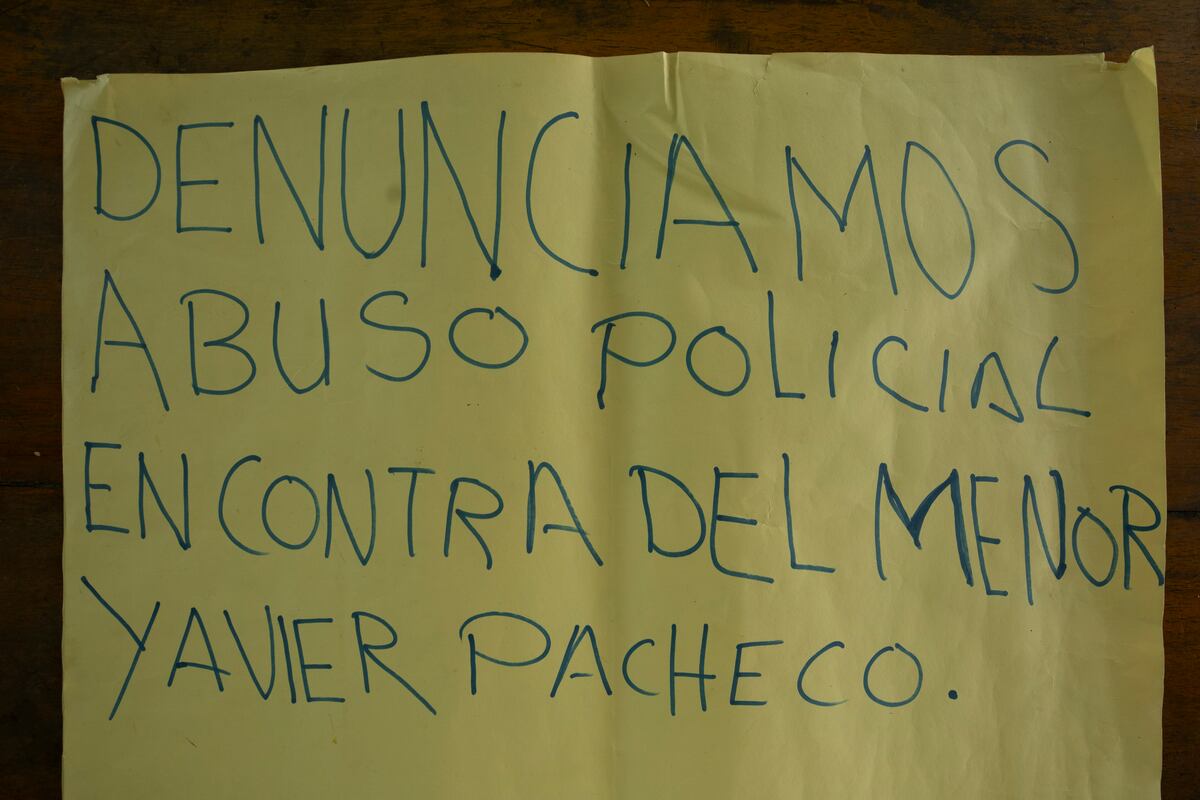 DENUNCIAMOS
ABUSO POLICIAL
EN CONTRA DEL MENOR
YAVIER PACHECO.